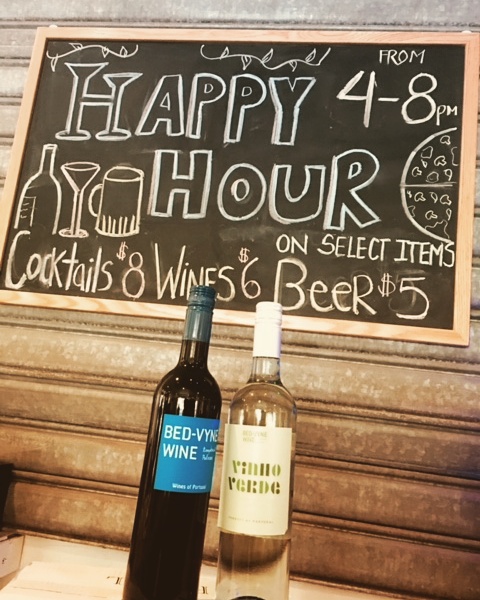 FROM
HAPPY
4-8PM
HOUR
ON SELECT ITEMS
Cocktails $8 WINES $6 BEER $5
BED-VYNE
WINE
Wines of Portugal
BED-VYNE
WINE
vinho
verde